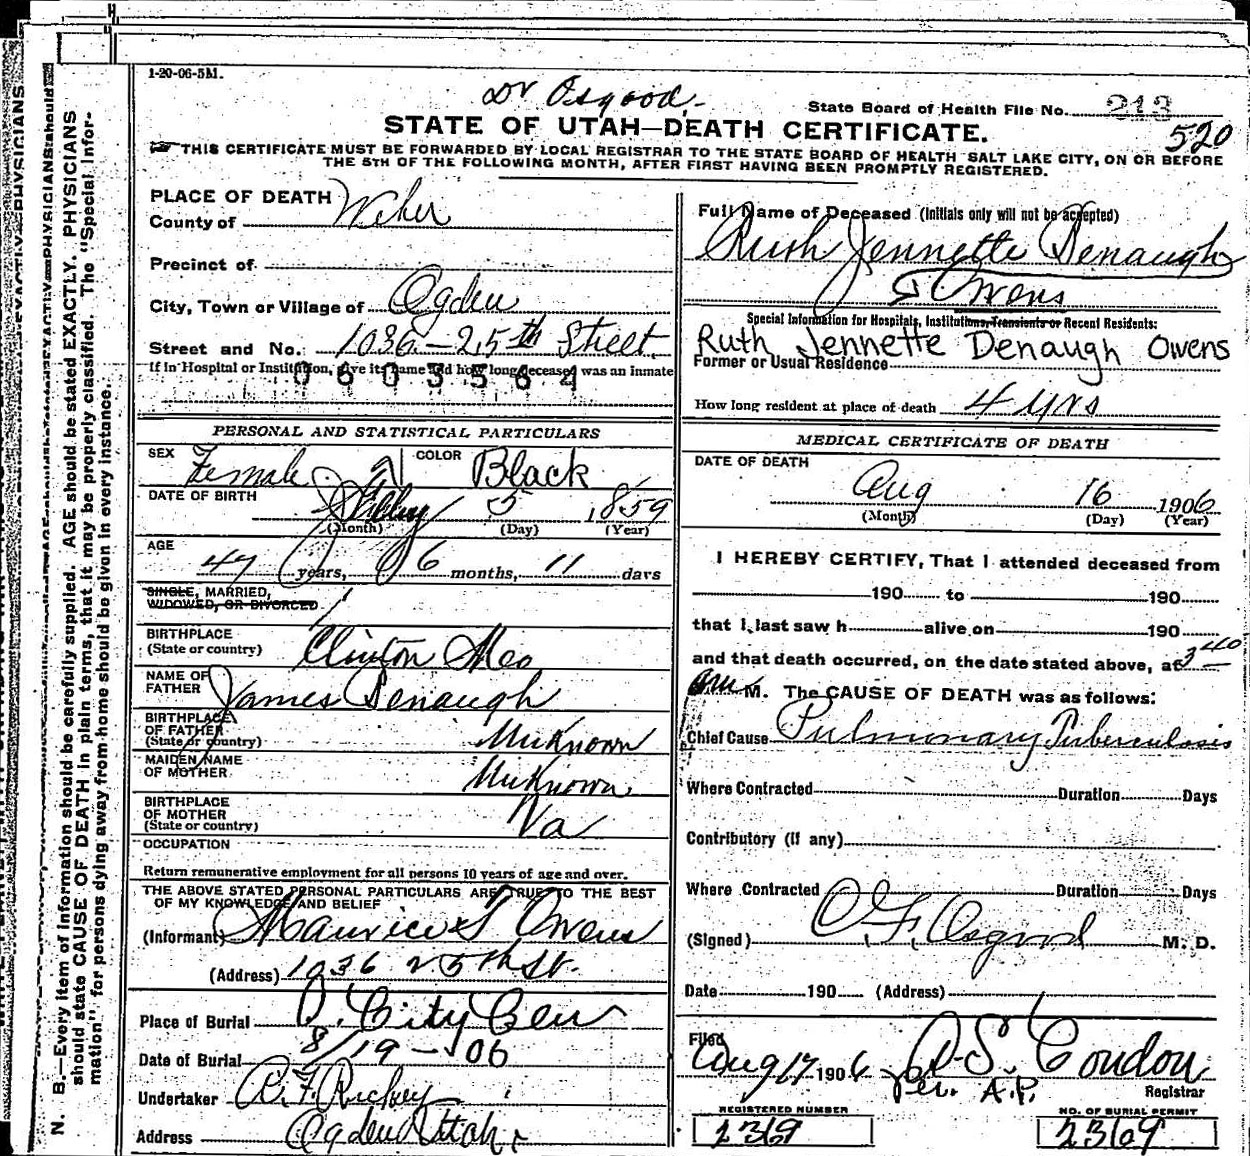 1-20-06-5M.
Dr Osgood.
State Board of Health File No. 213
520
STATE OF UTAH—DEATH CERTIFICATE.
THIS CERTIFICATE MUST BE FORWARDED BY LOCAL REGISTRAR TO THE STATE BOARD OF HEALTH SALT LAKE CITY, ON OR BEFORE
THE 5TH OF THE FOLLOWING MONTH, AFTER FIRST HAVING BEEN PROMPTLY REGISTERED.
N. B.—Every item of information should be carefully supplied. AGE should be stated EXACTLY. PHYSICIANS
should state CAUSE OF DEATH in plain terms, that it may be properly classified. The "Special Infor-
mation" for persons dying away from home should be given in every instance.
PLACE OF DEATH
County of Weber
Precinct of
City, Town or Village of Ogden
Street and No. 1036-25th Street
If in Hospital or Institution, give its name and how long deceased was an inmate
0603564
Full Name of Deceased (Initials only will not be accepted)
Ruth Jennette Denaugh
Owens
Special Information for Hospitals, Institutions, Transients or Recent Residents:
Ruth Jennette Denaugh Owens
Former or Usual Residence
How long resident at place of death 4 yrs
PERSONAL AND STATISTICAL PARTICULARS
SEX Female COLOR Black
DATE OF BIRTH 5 1859
(Month) (Day) (Year)
AGE
47 years, 6 months, 11 days
SINGLE, MARRIED,
WIDOWED, OR DIVORCED
BIRTHPLACE
(State or country) Clinton Mo
NAME OF
FATHER James Denaugh
BIRTHPLACE
OF FATHER
(State or country) Unknown
MAIDEN NAME
OF MOTHER Unknown
BIRTHPLACE
OF MOTHER
(State or country) Va
OCCUPATION
Return remunerative employment for all persons 10 years of age and over.
THE ABOVE STATED PERSONAL PARTICULARS ARE TRUE TO THE BEST
OF MY KNOWLEDGE AND BELIEF
(Informant) Maurice Owens
(Address) 1036 25th St.
Place of Burial O. City Cem
Date of Burial 8/19-06
Undertaker
Address Ogden Utah
MEDICAL CERTIFICATE OF DEATH
DATE OF DEATH
Aug 16 1906
(Month) (Day) (Year)
I HEREBY CERTIFY, That I attended deceased from
190 to 190
that I last saw h alive on 190
and that death occurred, on the date stated above, at 3 40
am M. The CAUSE OF DEATH was as follows:
Chief Cause Pulmonary Tuberculosis
Where Contracted Duration Days
Contributory (if any)
Where Contracted Duration Days
(Signed) Osgood M. D.
Date 190 (Address)
Filed
Aug 17 1906 Condon
Per. A.P. Registrar
REGISTERED NUMBER
2369
NO. OF BURIAL PERMIT
2369